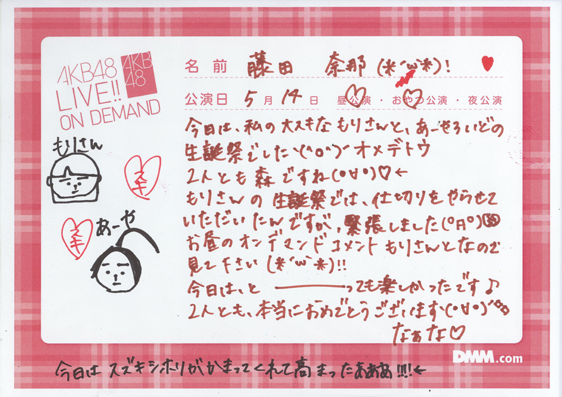 AKB48
LIVE!!
ON DEMAND
AKB
48
名前 藤田 奈那(*´ω`*)!
公演日 5月14日 昼公演・おやつ公演・夜公演
もりさん
スキ
あーや
スキ
今日は、私の大スキなもりさんと、あーせろいどの
生誕祭でしたヽ(^o^)ノオメデトウ
2人とも森ですね(°∀°)♡←
もりさんの生誕祭では、仕切りをやらせて
いただいたんですが、緊張しました(°Д°)
お昼のオンデマンドコメントもりさんとなので
見て下さい(*´ω`*)!!
今日は、と────っても楽しかったです♪
2人とも、本当におめでとうございますヽ(°∀°)ノ
なぁな♡
DMM.com
今日はスズキシホリがかまってくれて高まったぁぁぁ!!!!←